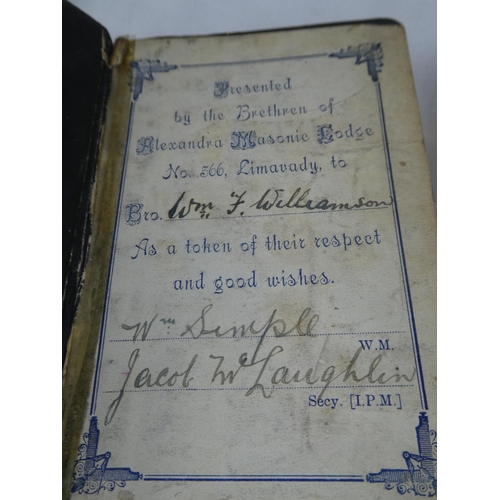 Presented
by the Brethren of
Alexandra Masonic Lodge
No. 366, Limavady, to
Bro. Wm F. Williamson
As a token of their respect
and good wishes.
Wm Simple
W.M.
Jacob McLaughlin
Secy. [I.P.M.]